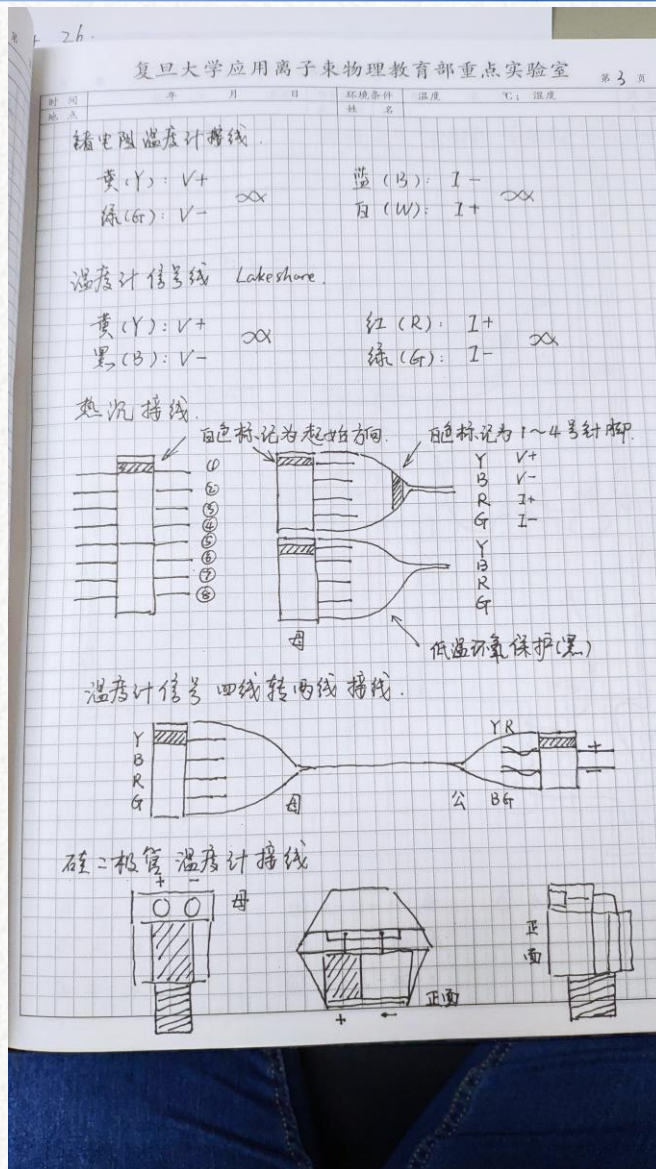 26.
复旦大学应用离子束物理教育部重点实验室 第 3 页
时 间 年 月 日 环境条件 温度 ℃; 湿度
地 点 姓 名
锗电阻温度计接线.
黄(Y): V+ 蓝(B): I-
绿(G): V- 白(W): I+
温度计信号线 Lakeshore.
黄(Y): V+ 红(R): I+
黑(B): V- 绿(G): I-
热沉接线.
白色标记为起始方向. 白色标记为1~4号针脚.
① Y V+
② B V-
③ R I+
④ G I-
⑤ Y
⑥ B
⑦ R
⑧ G
母 低温环氧保护(黑)
温度计信号 四线转两线接线.
Y YR
B +
R -
G 母 公 BG
硅二极管温度计接线
+ - 母
正面
正面
+ -